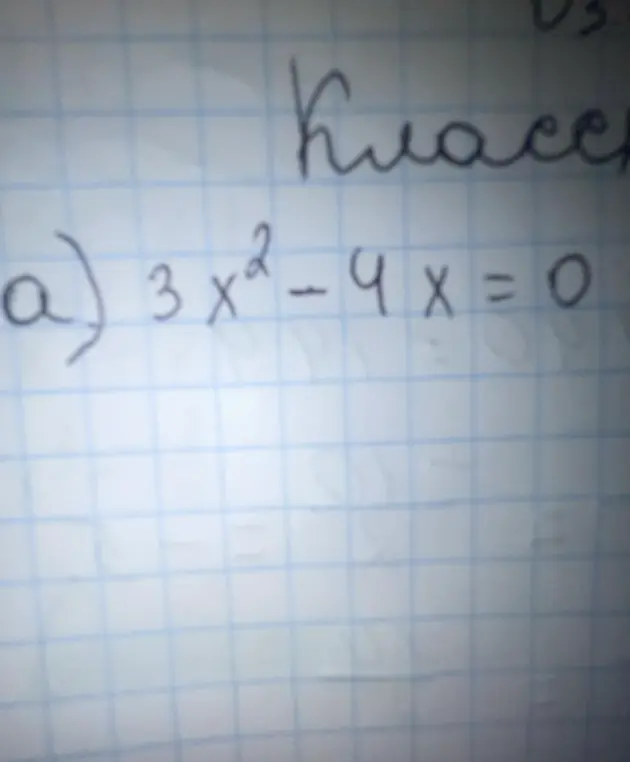 Класс
а) 3x² - 4x = 0